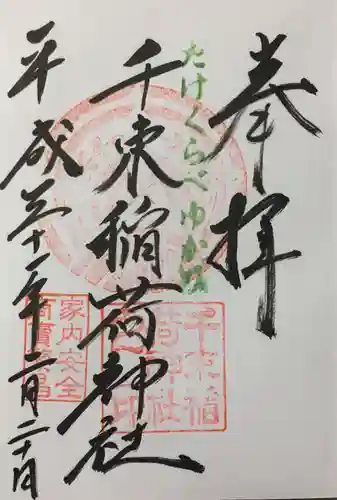 奉拝
たけくらべゆかりの
千束稲荷神社
平成三十一年二月二十日
千束稲
荷神社
家内安全
商売繁昌